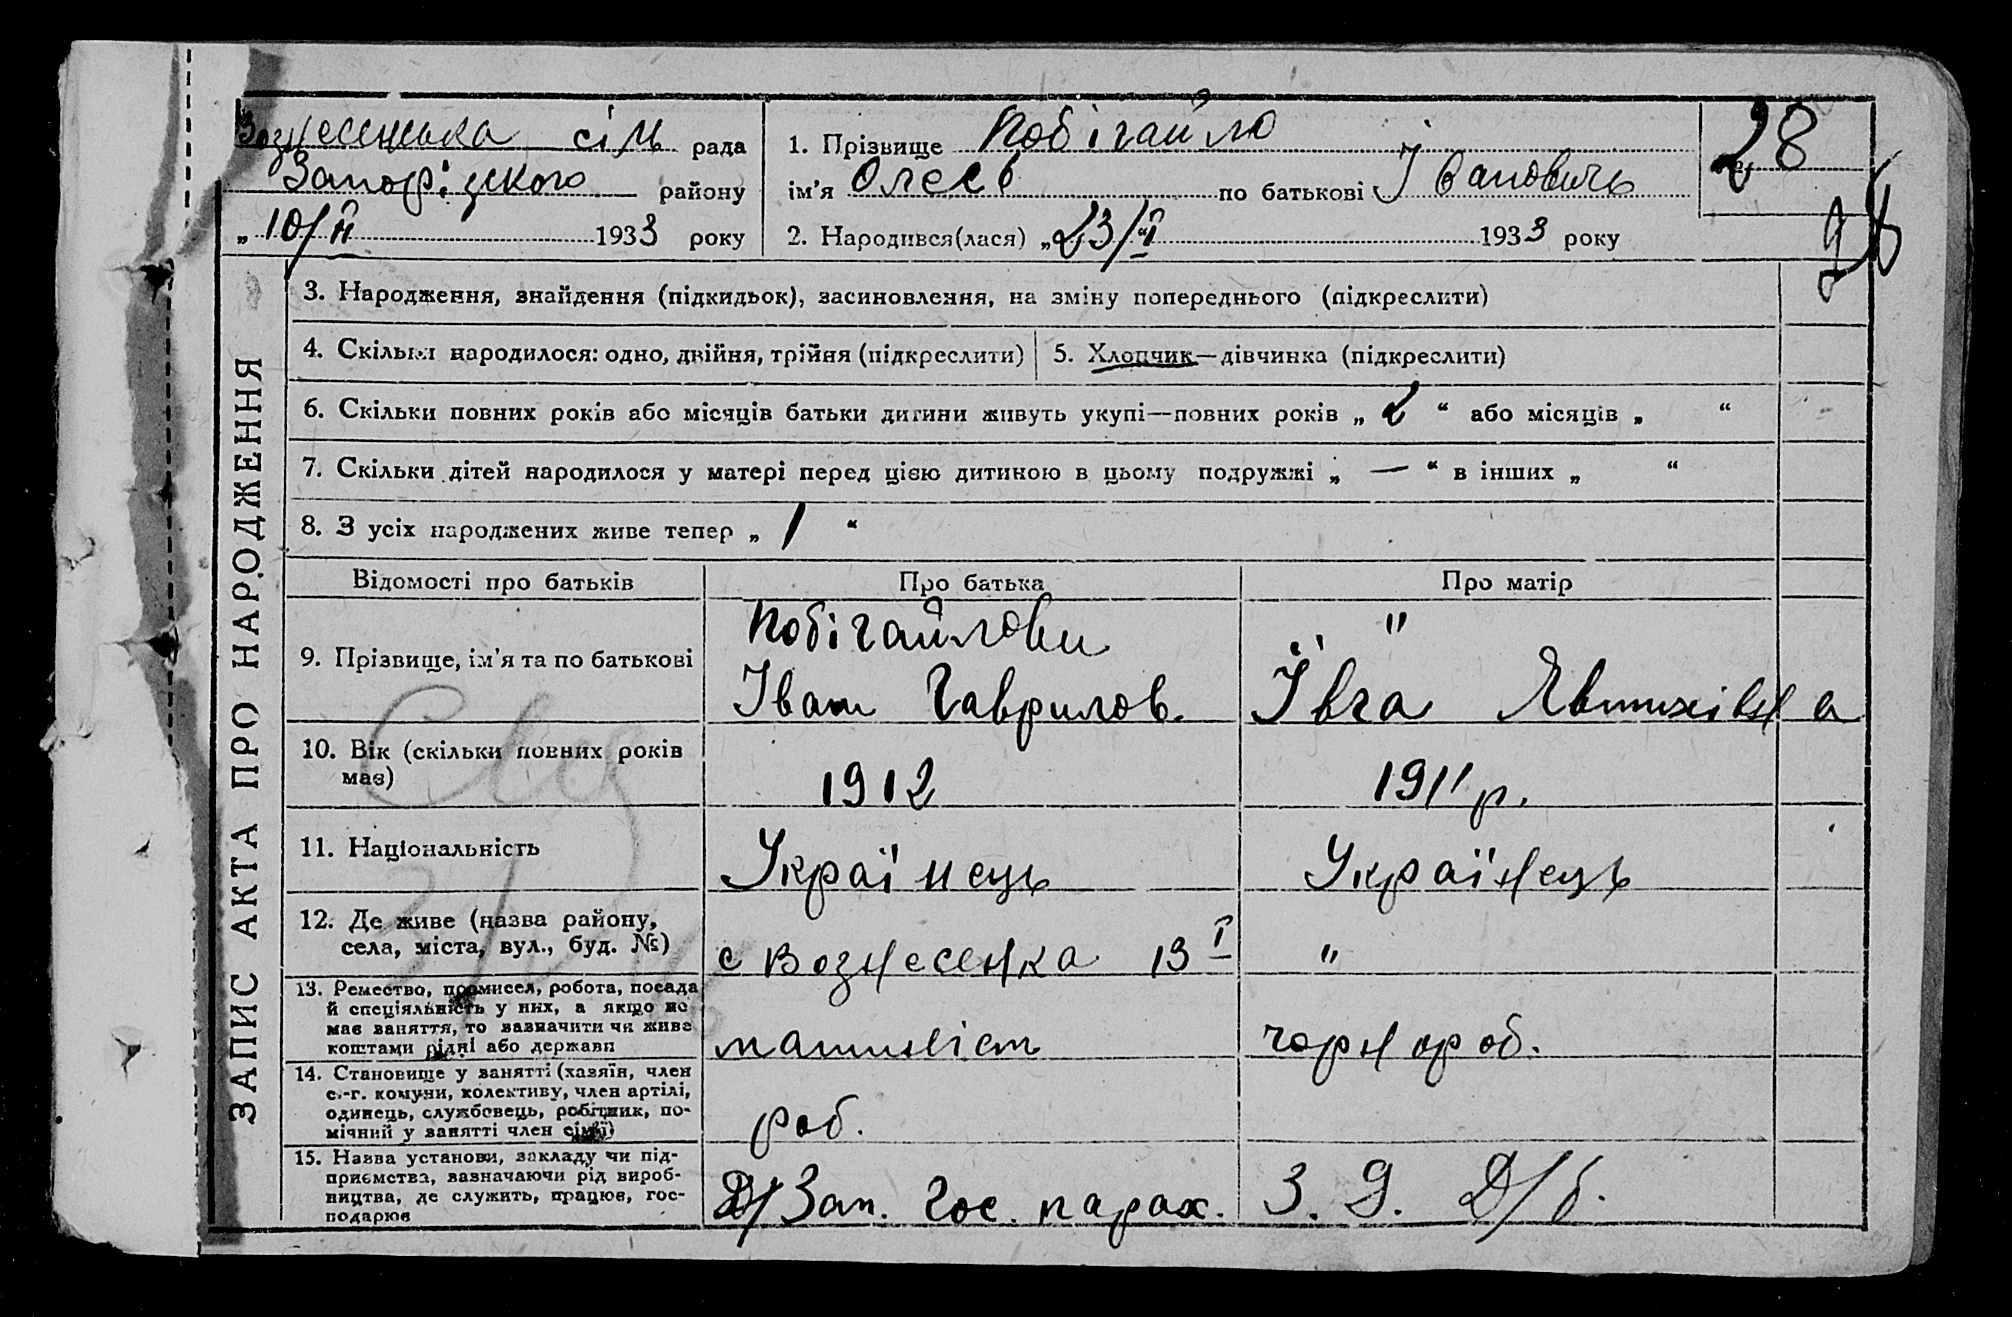 Вознесенська сіль рада
Запоріцького району
„ 10/ІІ 1933 року
1. Прізвище Побігайло
ім'я Олесь по батькові Іванович
2. Народився(лася) „ 23/І 1933 року
28
28
ЗАПИС АКТА ПРО НАРОДЖЕННЯ
3. Народження, знайдення (підкидьок), засиновлення, на зміну попереднього (підкреслити)
4. Скільки народилося: одно, двійня, трійня (підкреслити)
5. Хлопчик—дівчинка (підкреслити)
6. Скільки повних років або місяців батьки дитини живуть укупі—повних років „ 2 “ або місяців „ “
7. Скільки дітей народилося у матері перед цією дитиною в цьому подружжі „ — “ в інших „ “
8. З усіх народжених живе тепер „ 1 “
Відомості про батьків
Про батька
Про матір
9. Прізвище, ім'я та по батькові
Побігайлови
Іван Гаврилов.
"
Івга Явтихівна
10. Вік (скільки повних років
має)
1912
1911 р.
11. Національність
Українець
Українець
12. Де живе (назва району,
села, міста, вул., буд. №)
с Вознесенка 13 І
"
13. Ремество, промисел, робота, посада
й спеціяльність у них, а якщо не
має заняття, то зазначити чи живе
коштами рідні або держави
машиніст
чорнороб.
14. Становище у занятті (хазяїн, член
с.-г. комуни, колективу, член артілі,
одинець, службовець, робітник, по-
мічний у занятті член сім'ї)
роб.
15. Назва установи, закладу чи під-
приємства, зазначаючи рід вироб-
ництва, де служить, працює, гос-
подарює
Д/Зап. Гос. парах.
З. Д/б.